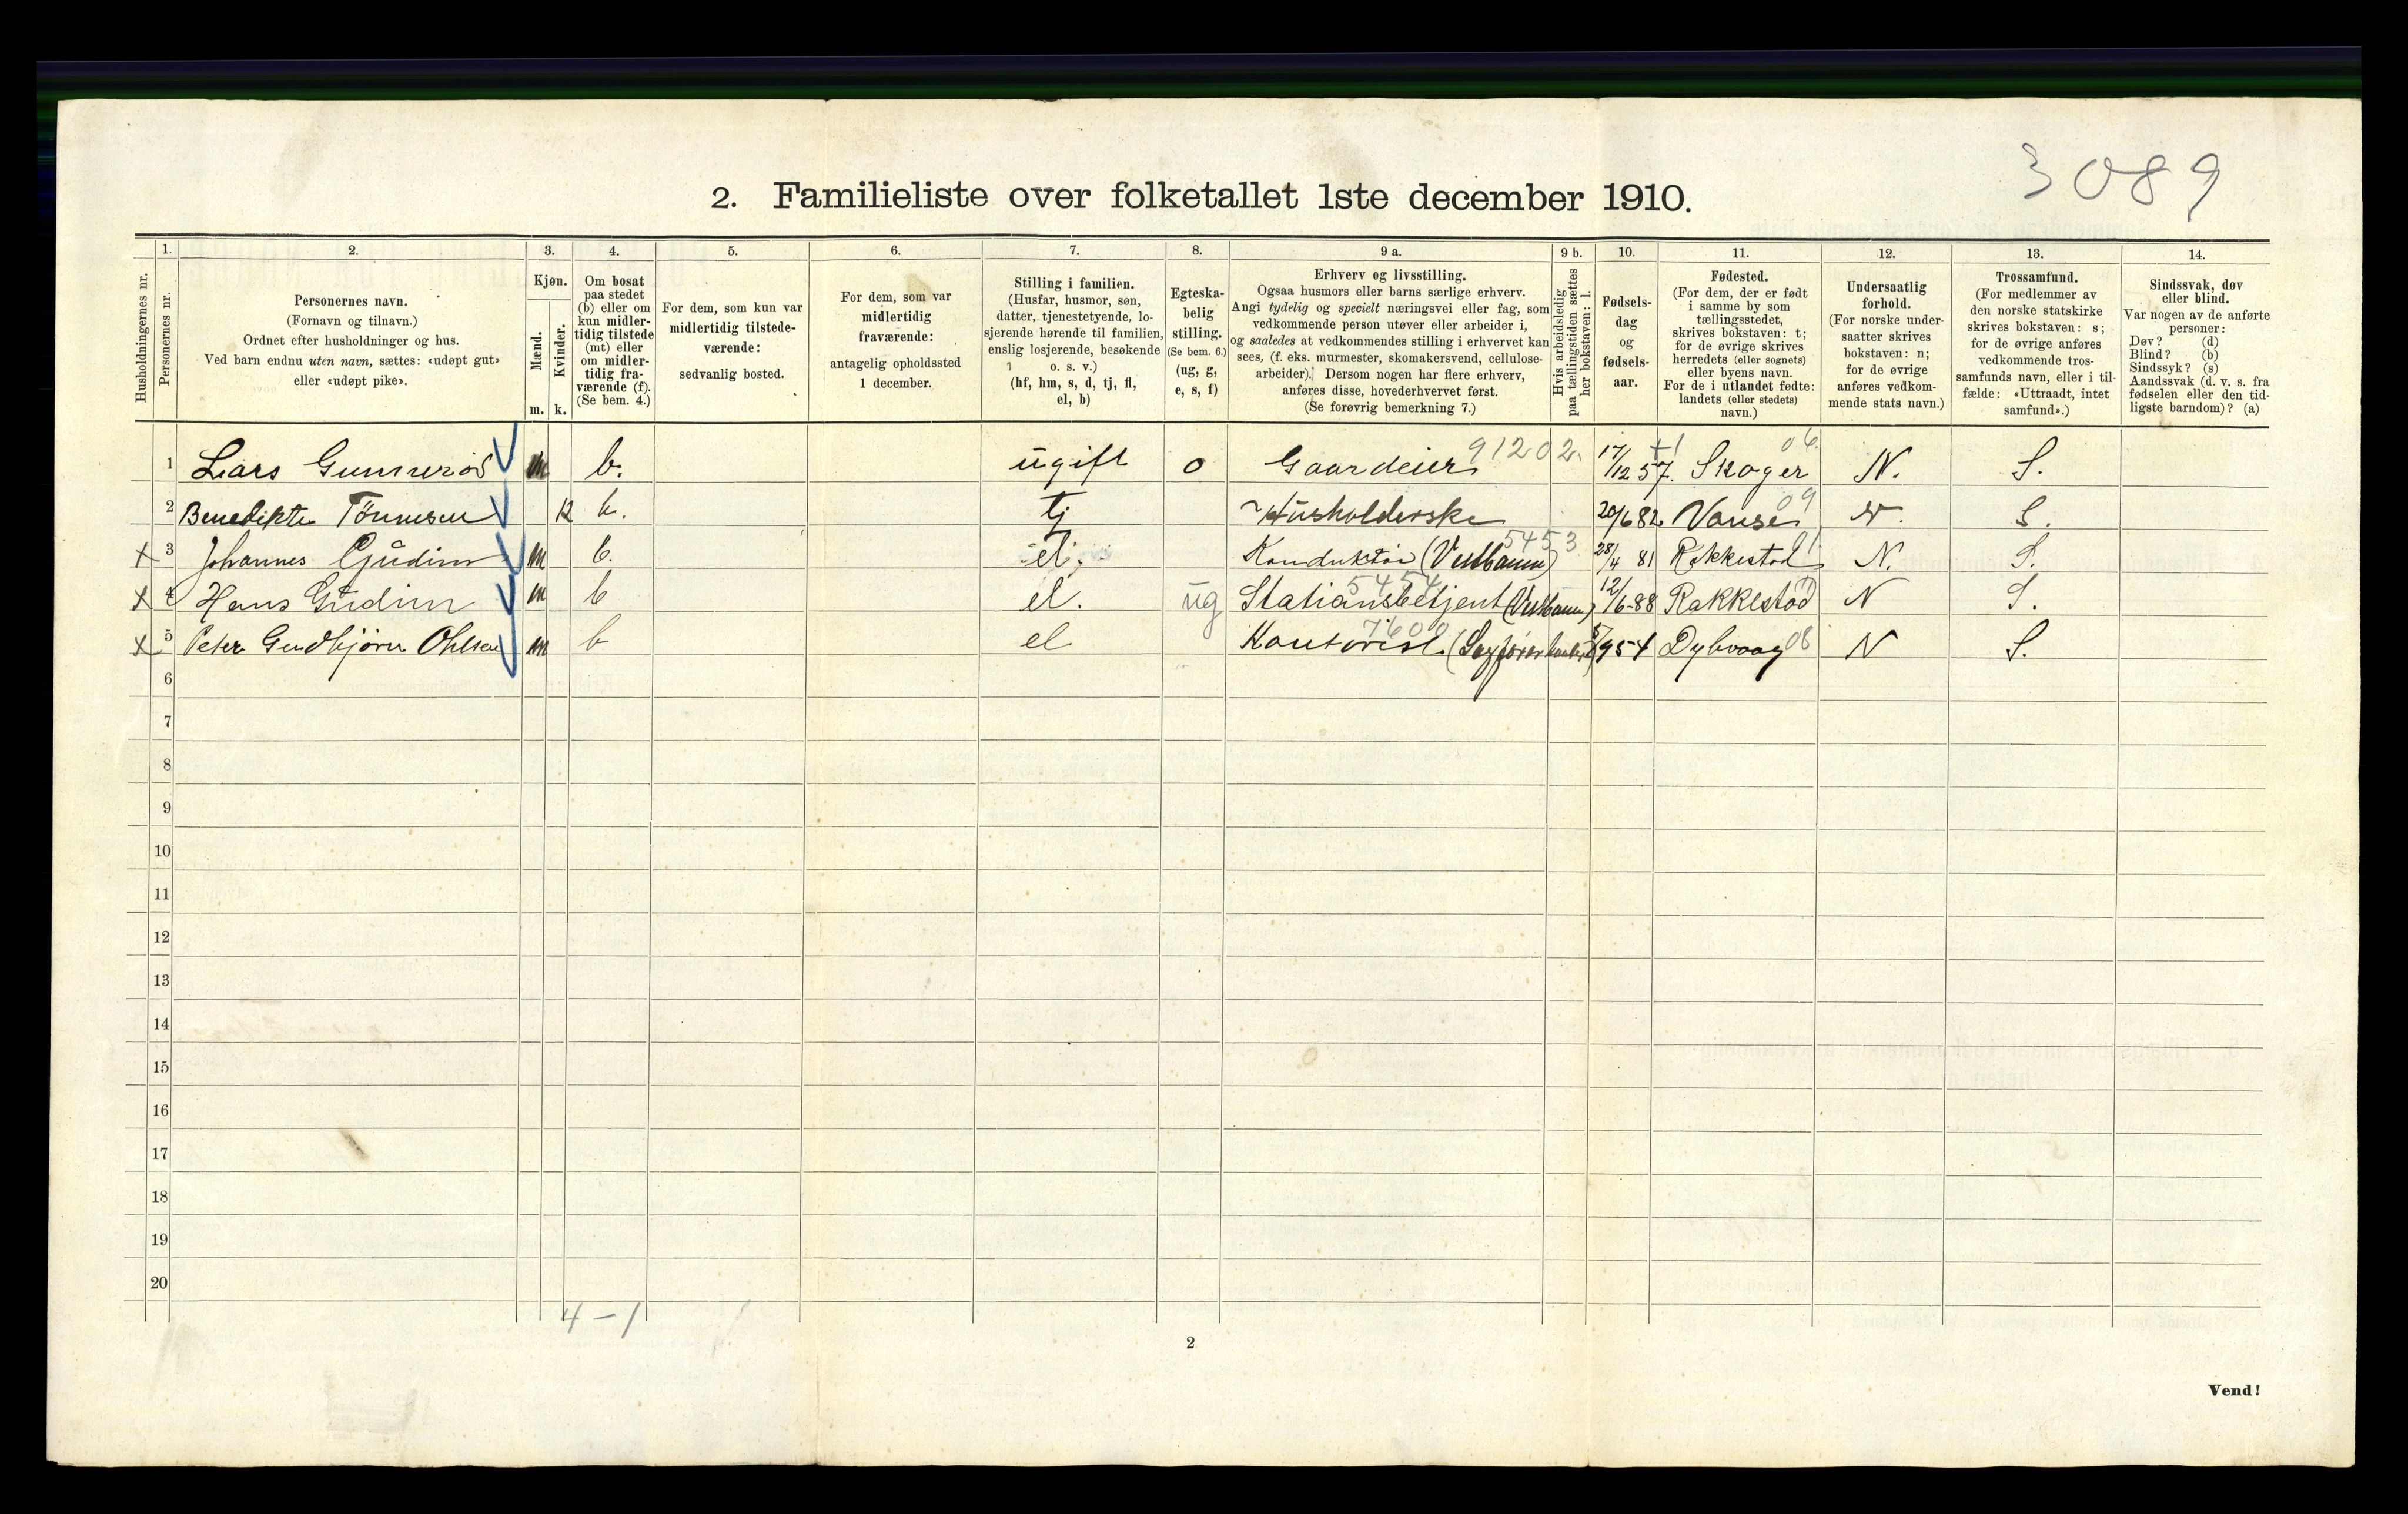 3089
2. Familieliste over folketallet 1ste december 1910.
Husholdningernes nr.
1. Personernes nr.
2. Personernes navn.
(Fornavn og tilnavn.)
Ordnet efter husholdninger og hus.
Ved barn endnu uten navn, sættes: «udøpt gut»
eller «udøpt pike».
3. Kjøn.
Mænd. m.
Kvinder. k.
4. Om bosat
paa stedet
(b) eller om
kun midler-
tidig tilstede
(mt) eller
om midler-
tidig fra-
værende (f).
(Se bem. 4.)
5. For dem, som kun var
midlertidig tilstede-
værende:
sedvanlig bosted.
6. For dem, som var
midlertidig
fraværende:
antagelig opholdssted
1 december.
7. Stilling i familien.
(Husfar, husmor, søn,
datter, tjenestetyende, lo-
sjerende hørende til familien,
enslig losjerende, besøkende
o. s. v.)
(hf, hm, s, d, tj, fl,
el, b)
8. Egteska-
belig
stilling.
(Se bem. 6.)
(ug, g,
e, s, f)
9 a. Erhverv og livsstilling.
Ogsaa husmors eller barns særlige erhverv.
Angi tydelig og specielt næringsvei eller fag, som
vedkommende person utøver eller arbeider i,
og saaledes at vedkommendes stilling i erhvervet kan
sees, (f. eks. murmester, skomakersvend, cellulose-
arbeider). Dersom nogen har flere erhverv,
anføres disse, hovederhvervet først.
(Se forøvrig bemerkning 7.)
9 b. Hvis arbeidsledig
paa tællingstiden sættes
her bokstaven: l.
10. Fødsels-
dag
og
fødsels-
aar.
11. Fødested.
(For dem, der er født
i samme by som
tællingsstedet,
skrives bokstaven: t;
for de øvrige skrives
herredets (eller sognets)
eller byens navn.
For de i utlandet fødte:
landets (eller stedets)
navn.)
12. Undersaatlig
forhold.
(For norske under-
saatter skrives
bokstaven: n;
for de øvrige
anføres vedkom-
mende stats navn.)
13. Trossamfund.
(For medlemmer av
den norske statskirke
skrives bokstaven: s;
for de øvrige anføres
vedkommende tros-
samfunds navn, eller i til-
fælde: «Uttraadt, intet
samfund».)
14. Sindssvak, døv
eller blind.
Var nogen av de anførte
personer:
Døv? (d)
Blind? (b)
Sindssyk? (s)
Aandssvak (d. v. s. fra
fødselen eller den tid-
ligste barndom)? (a)
1 Lars m b. ugift o Gaardeier 91202. 17/12 57. Skoger 06 N. S.
2 Benedikte Tönnesen K b. tj Husholderske 20/6 82 Vanse 09 N. S.
x 3 Johannes Gudim m b. el. Konduktör (Vestbanen) 5453 28/4 81 Rakkestad 01 N. S.
x 4 Hans Gudim m b el. ug Stationsbetjent (Vestbanen) 5454 12/6-88 Rakkestad N S.
x 5 Peter Gudbjörn Ohlsen m b el Kontorist 7600 54 Dybvaag 08 N S.
6
7
8
9
10
11
12
13
14
15
16
17
18
19
20
4 - 1
2
Vend!